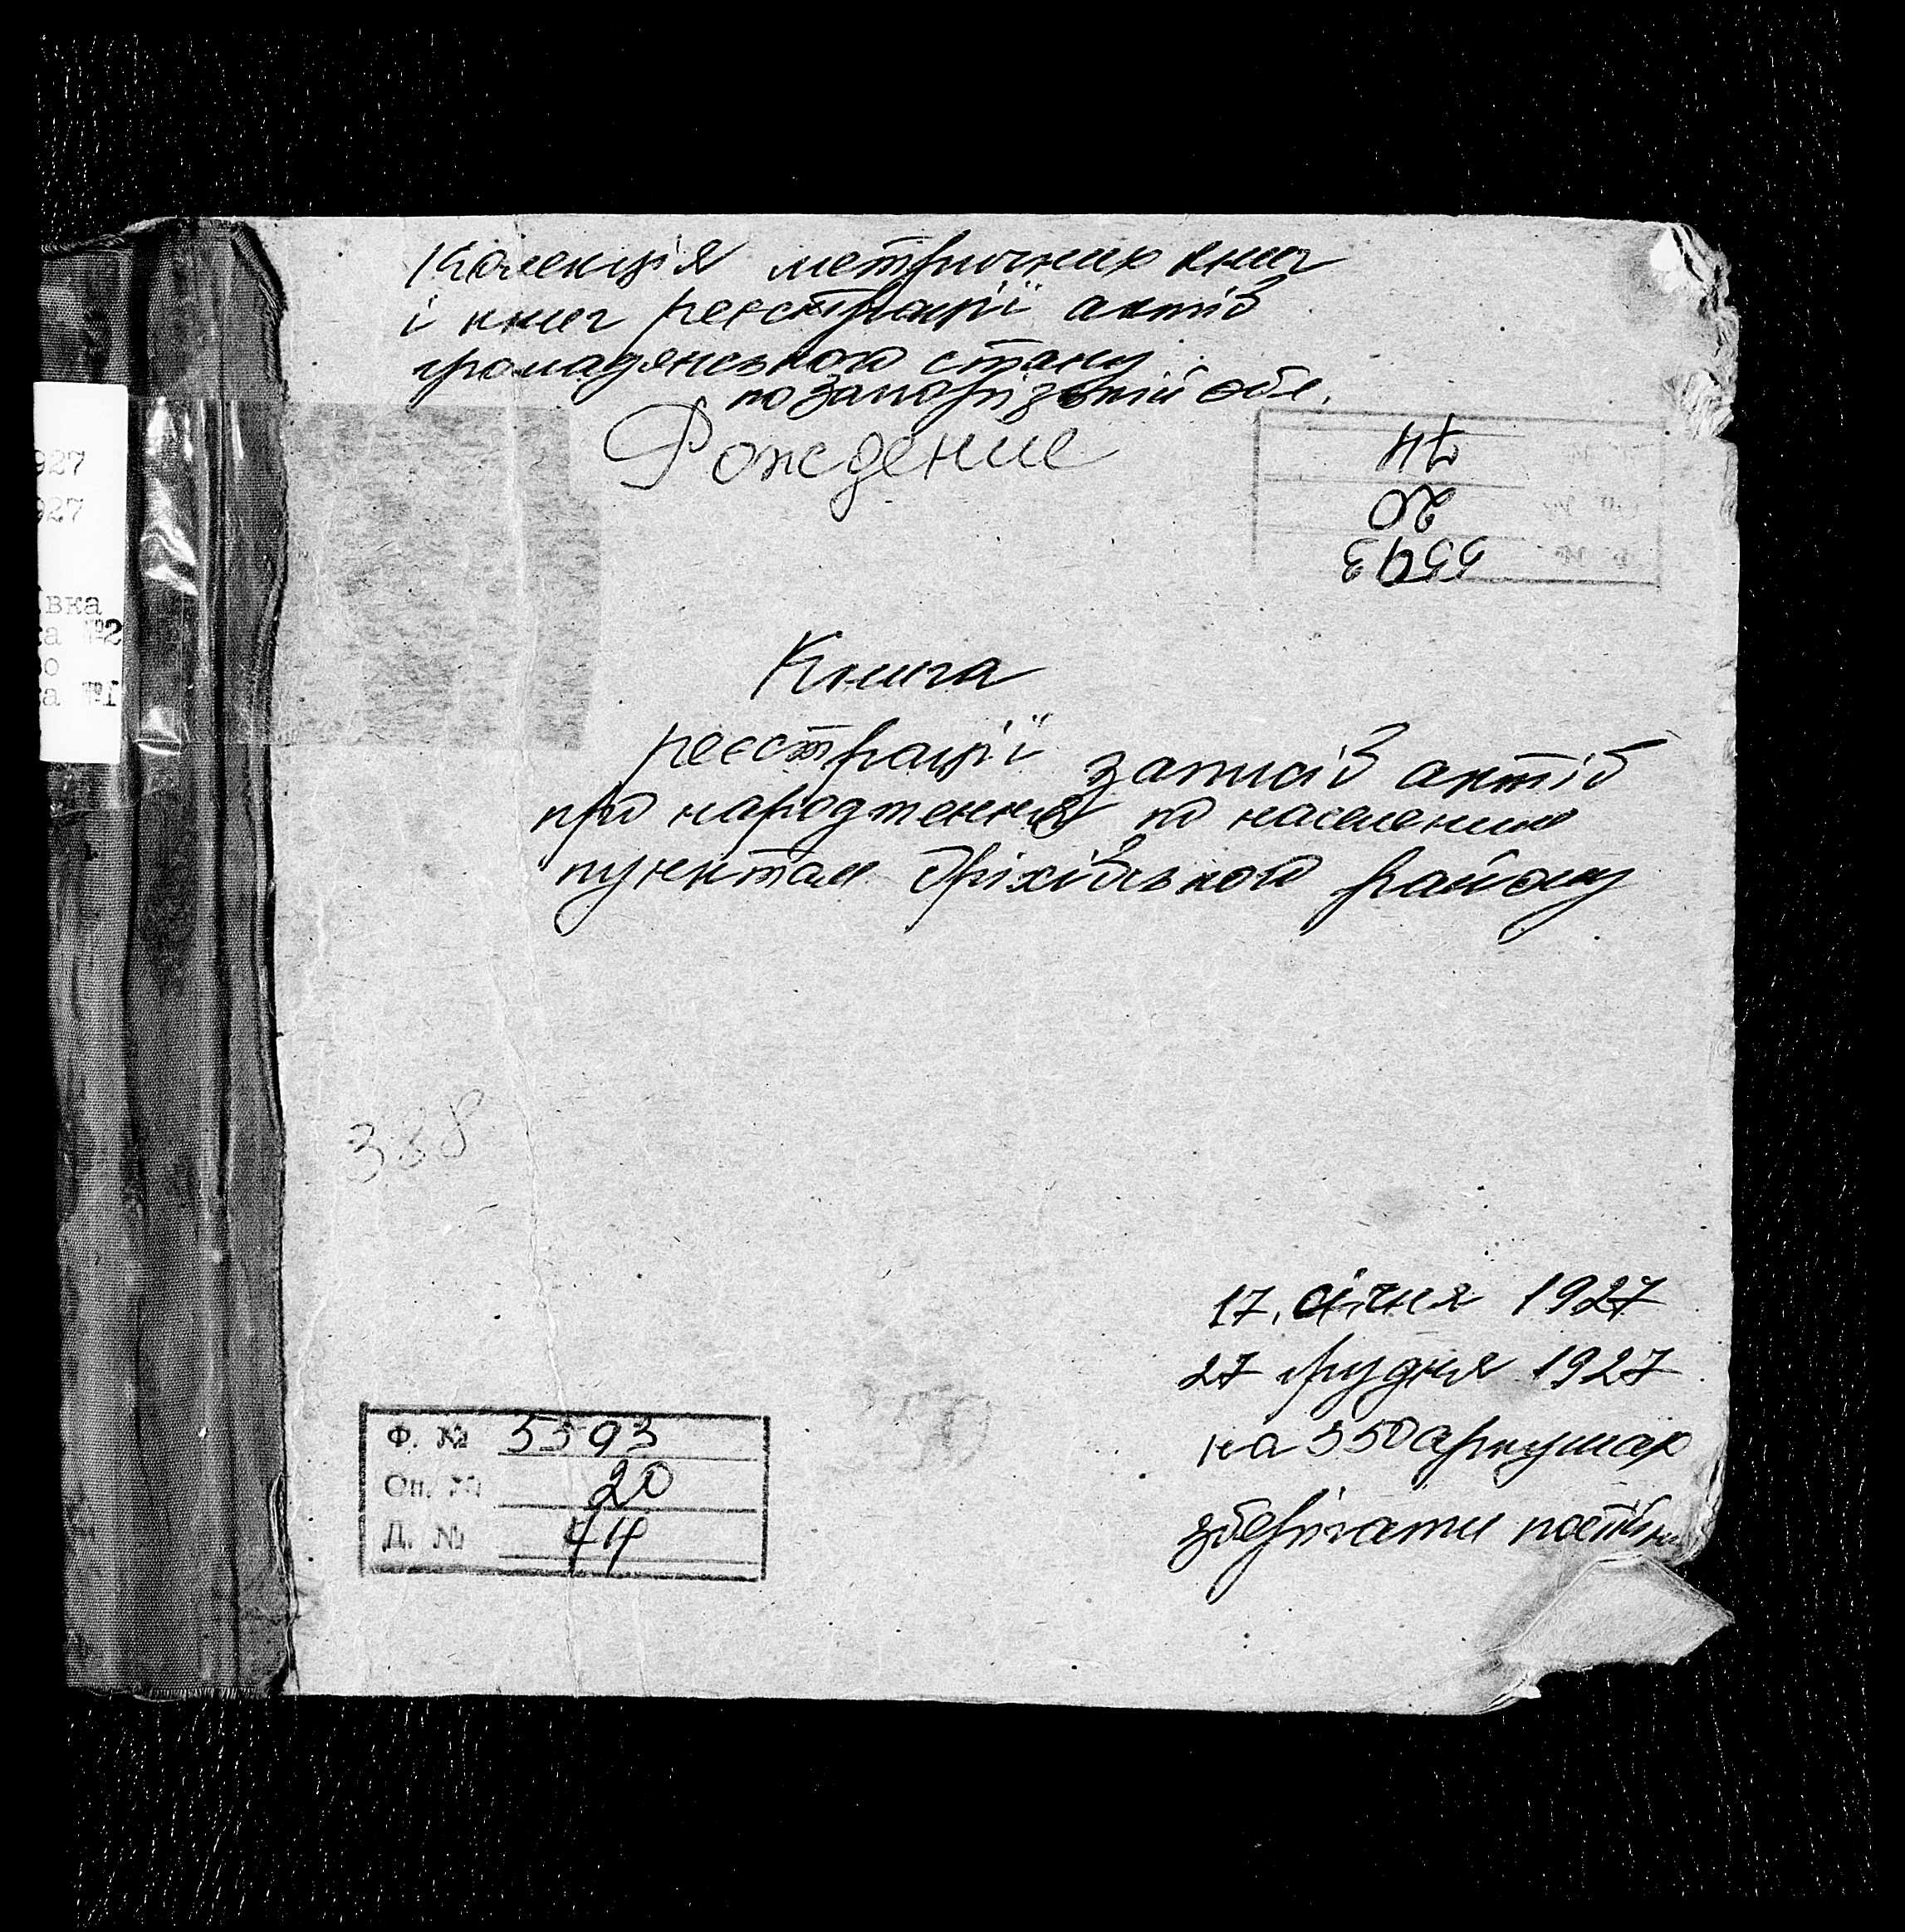 Колекція метричних книг
і книг реєстрації актів
громадянського стану
по Запорізькій обл.
Рождение
74
20
5593
927
927
вка
а №2
о
а №1
Книга
реєстрації записів актів
про народження по населених
пунктам Оріхівського району
338
17 січня 1927
27 грудня 1927
на 350 аркушах
зберігати постійно
Ф. № 5593
Оп. № 20
Д. № 74